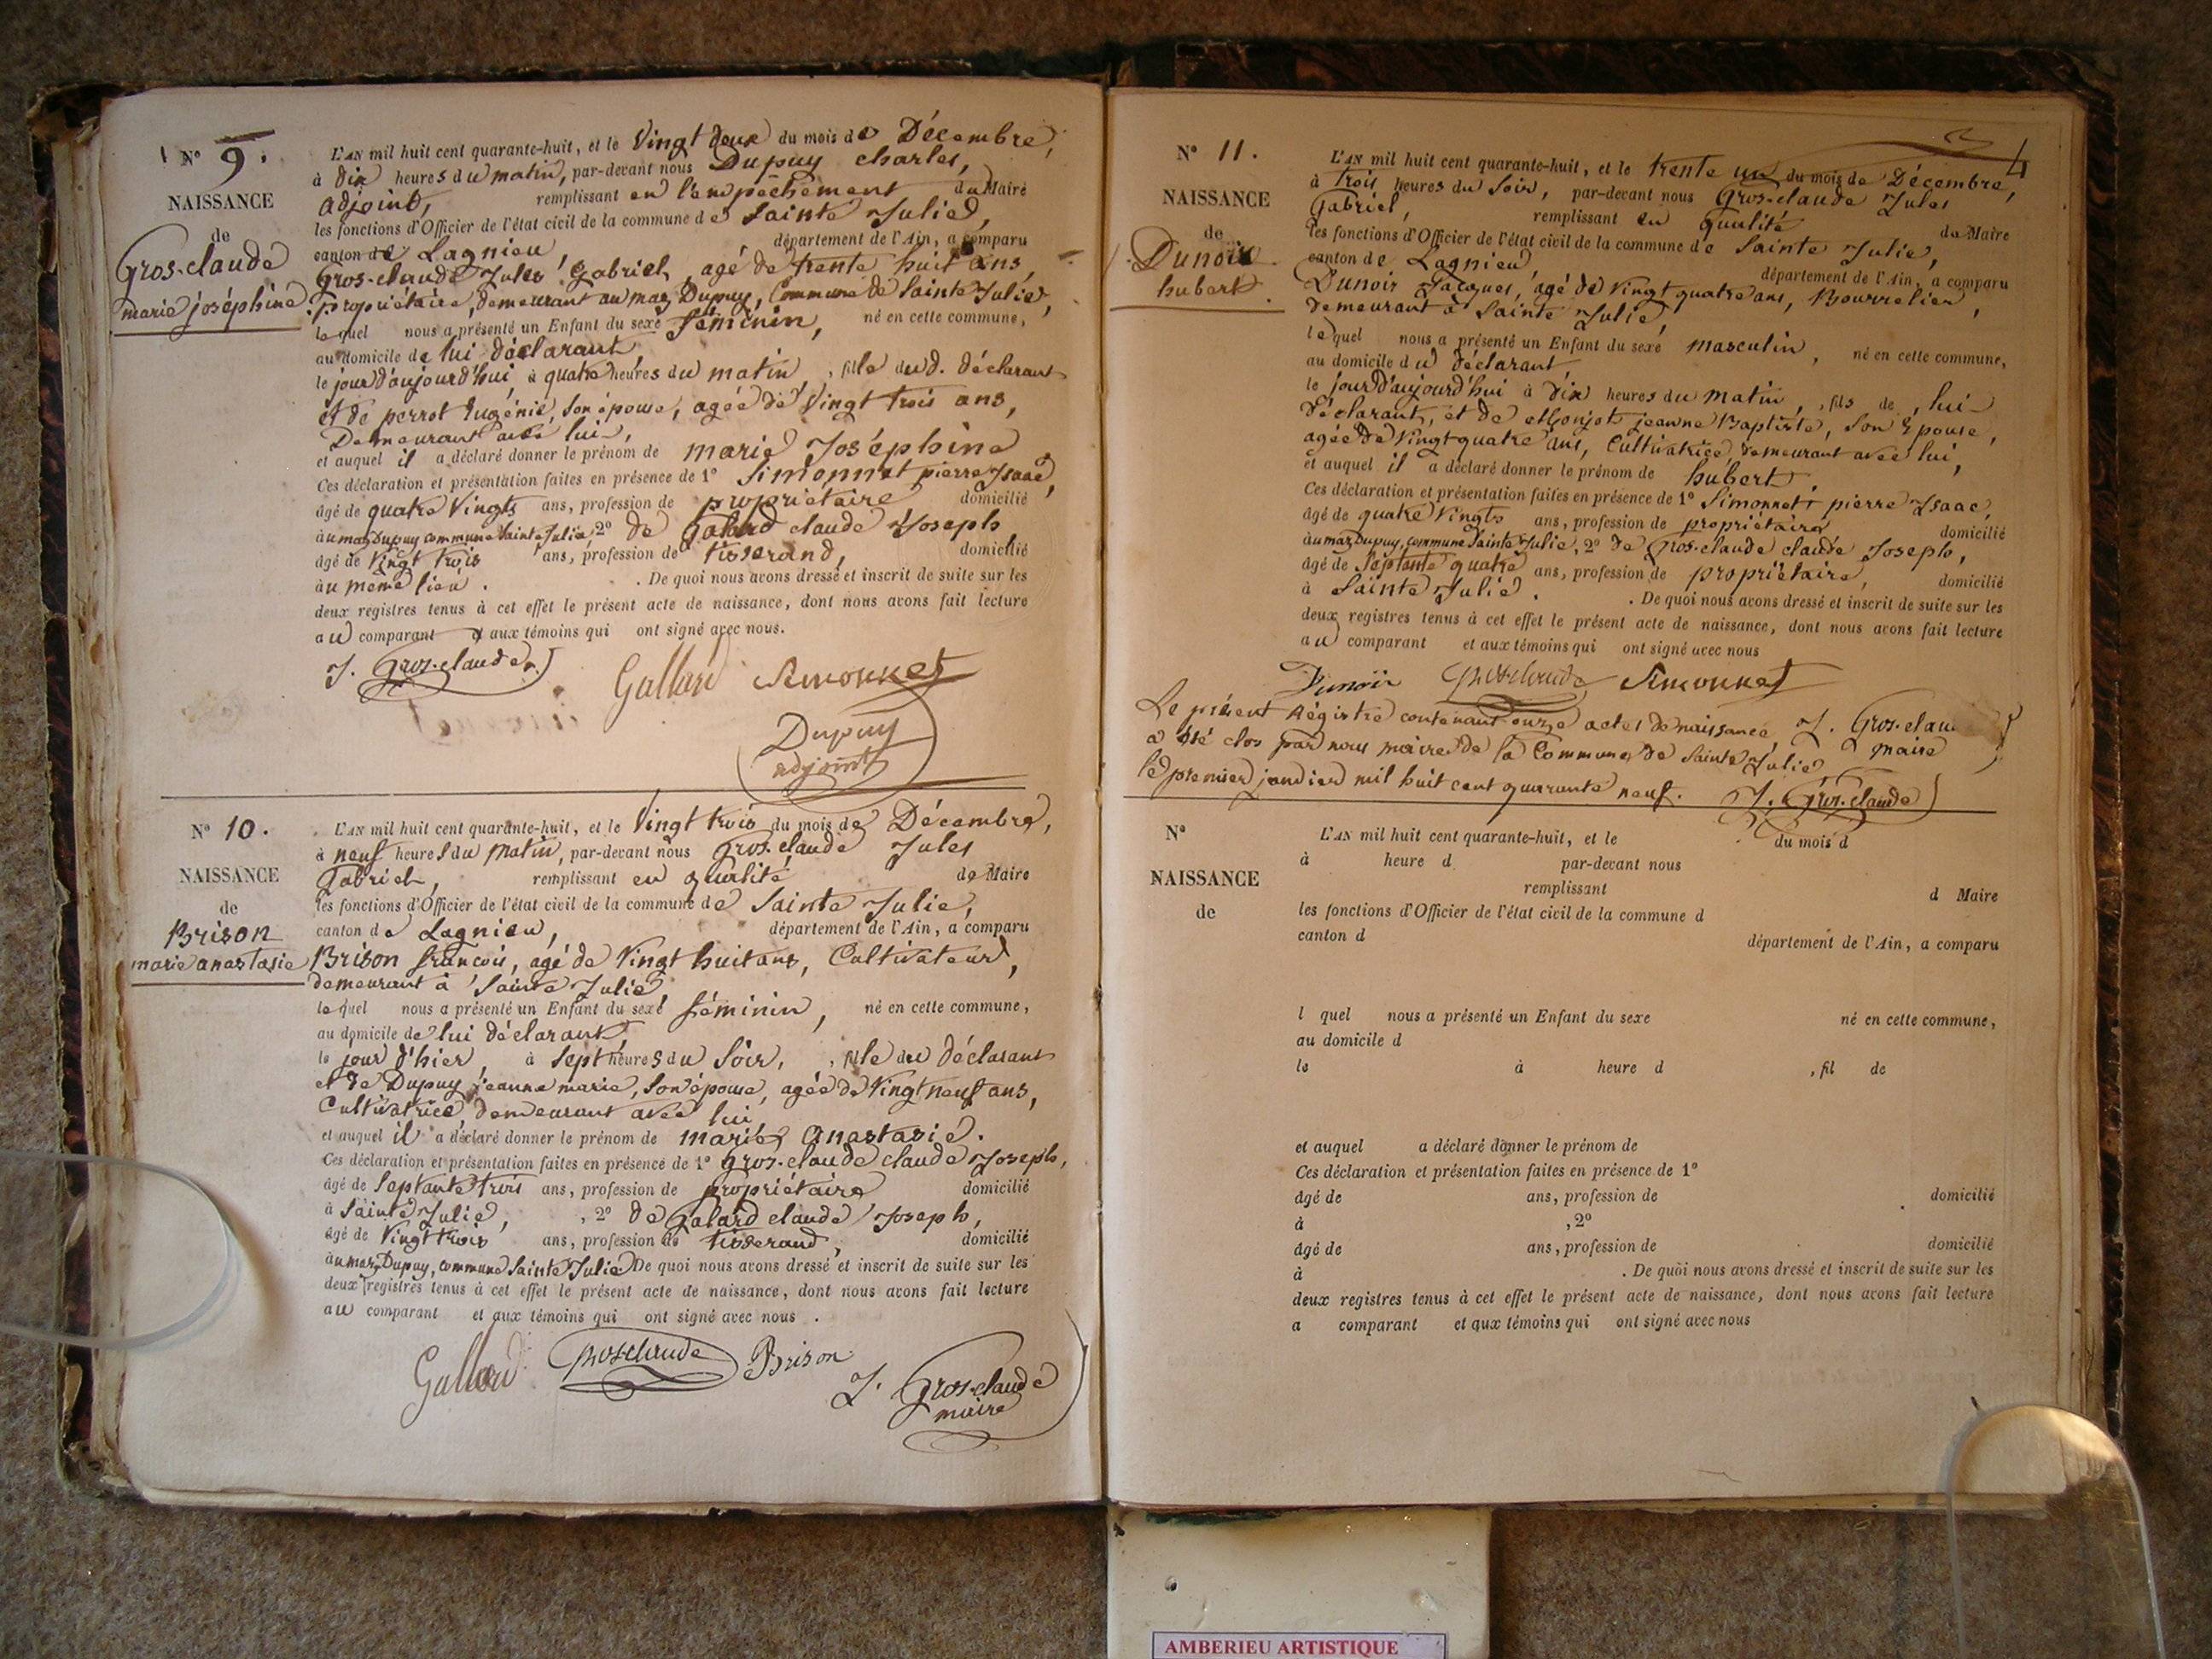 N° 9.
NAISSANCE
de
Gros-claude
marie joséphine
L'AN mil huit cent quarante-huit, et le Vingt deux du mois de Décembre,
à dix heures du matin, par-devant nous Dupuy charles,
adjoint, remplissant en l'empêchement du Maire
les fonctions d'Officier de l'état civil de la commune de Sainte Julie,
canton de Lagnieu, département de l'Ain, a comparu
Gros-claude Jules Gabriel, agé de trente huit ans,
propriétaire, demeurant au maz Dupuy, Commune de Sainte Julie,
lequel nous a présenté un Enfant du sexe féminin, né en cette commune,
au domicile de lui déclarant,
le jour d'aujourd'hui à quatre heures du matin, fille dud. déclarant
et de perrot Eugénie, son épouse, agée de Vingt trois ans,
Demeurant avec lui,
et auquel il a déclaré donner le prénom de marie Joséphine
Ces déclaration et présentation faites en présence de 1° Simonnet pierre Isaac,
âgé de quatre Vingts ans, profession de propriétaire domicilié
à au maz Dupuy commune Sainte Julie, 2° de Galard claude Joseph
âgé de Vingt trois ans, profession de tisserand, domicilié
à au même lieu. . De quoi nous avons dressé et inscrit de suite sur les
deux registres tenus à cet effet le présent acte de naissance, dont nous avons fait lecture
au comparant et aux témoins qui ont signé avec nous.
J. Gros-claude Gallard Simonnet
Dupuy
adjoint
N° 10.
NAISSANCE
de
Brison
marie anastasie
L'AN mil huit cent quarante-huit, et le Vingt trois du mois de Décembre,
à neuf heures du matin, par-devant nous Gros-claude Jules
Gabriel, remplissant en qualité de Maire
les fonctions d'Officier de l'état civil de la commune de Sainte Julie,
canton de Lagnieu, département de l'Ain, a comparu
Brison francois, agé de Vingt huit ans, Cultivateur,
demeurant à Sainte Julie
lequel nous a présenté un Enfant du sexe féminin, né en cette commune,
au domicile de lui déclarant,
le jour d'hier, à Sept heures du Soir, , fille du déclarant
et de Dupuy jeanne marie, Son épouse, agée de Vingt neuf ans,
Cultivatrice, demeurant avec lui
et auquel il a déclaré donner le prénom de marie Anastasie.
Ces déclaration et présentation faites en présence de 1° Gros-claude claude Joseph,
âgé de Septante trois ans, profession de propriétaire domicilié
à Sainte Julie, , 2° de Galard claude Joseph,
âgé de Vingt trois ans, profession de tisserand, domicilié
à au maz Dupuy, commune Sainte Julie De quoi nous avons dressé et inscrit de suite sur les
deux registres tenus à cet effet le présent acte de naissance, dont nous avons fait lecture
au comparant et aux témoins qui ont signé avec nous .
Gallard Grosclaude Brison
J. Gros-claude
maire
4
N° 11.
NAISSANCE
de
Dunoir
hubert
L'AN mil huit cent quarante-huit, et le trente un du mois de Décembre,
à trois heures du Soir, par-devant nous Gros-claude Jules
Gabriel, remplissant en qualité de Maire
les fonctions d'Officier de l'état civil de la commune de Sainte Julie,
canton de Lagnieu, département de l'Ain, a comparu
Dunoir Jacques, agé de Vingt quatre ans, Bourrelier,
demeurant à Sainte Julie,
lequel nous a présenté un Enfant du sexe masculin, né en cette commune,
au domicile du déclarant
le jour d'aujourd'hui à dix heures du matin, , fils de , lui
déclarant, et de Monjot jeanne Baptiste, Son Epouse,
agée de Vingt quatre ans, Cultivatrice, demeurant avec lui,
et auquel il a déclaré donner le prénom de hubert.
Ces déclaration et présentation faites en présence de 1° Simonnet pierre Isaac,
âgé de quatre Vingts ans, profession de propriétaire domicilié
à au maz Dupuy, commune Sainte Julie, 2° de Gros-claude claude Joseph,
âgé de Septante quatre ans, profession de propriétaire, domicilié
à Sainte Julie. . De quoi nous avons dressé et inscrit de suite sur les
deux registres tenus à cet effet le présent acte de naissance, dont nous avons fait lecture
au comparant et aux témoins qui ont signé avec nous
Dunoir Grosclaude Simonnet
Le présent Régistre contenant onze actes de naissance J. Gros-claude
a été clos par nous maire de la Commune de Sainte Julie maire
le premier janvier mil huit cent quarante neuf. J. Gros-claude
N°
NAISSANCE
de
L'AN mil huit cent quarante-huit, et le du mois d
à heure d par-devant nous
remplissant d Maire
les fonctions d'Officier de l'état civil de la commune d
canton d département de l'Ain, a comparu
l quel nous a présenté un Enfant du sexe né en cette commune,
au domicile d
le à heure d , fil de
et auquel a déclaré donner le prénom de
Ces déclaration et présentation faites en présence de 1°
âgé de ans, profession de domicilié
à , 2°
âgé de ans, profession de domicilié
à . De quoi nous avons dressé et inscrit de suite sur les
deux registres tenus à cet effet le présent acte de naissance, dont nous avons fait lecture
a comparant et aux témoins qui ont signé avec nous
AMBERIEU ARTISTIQUE